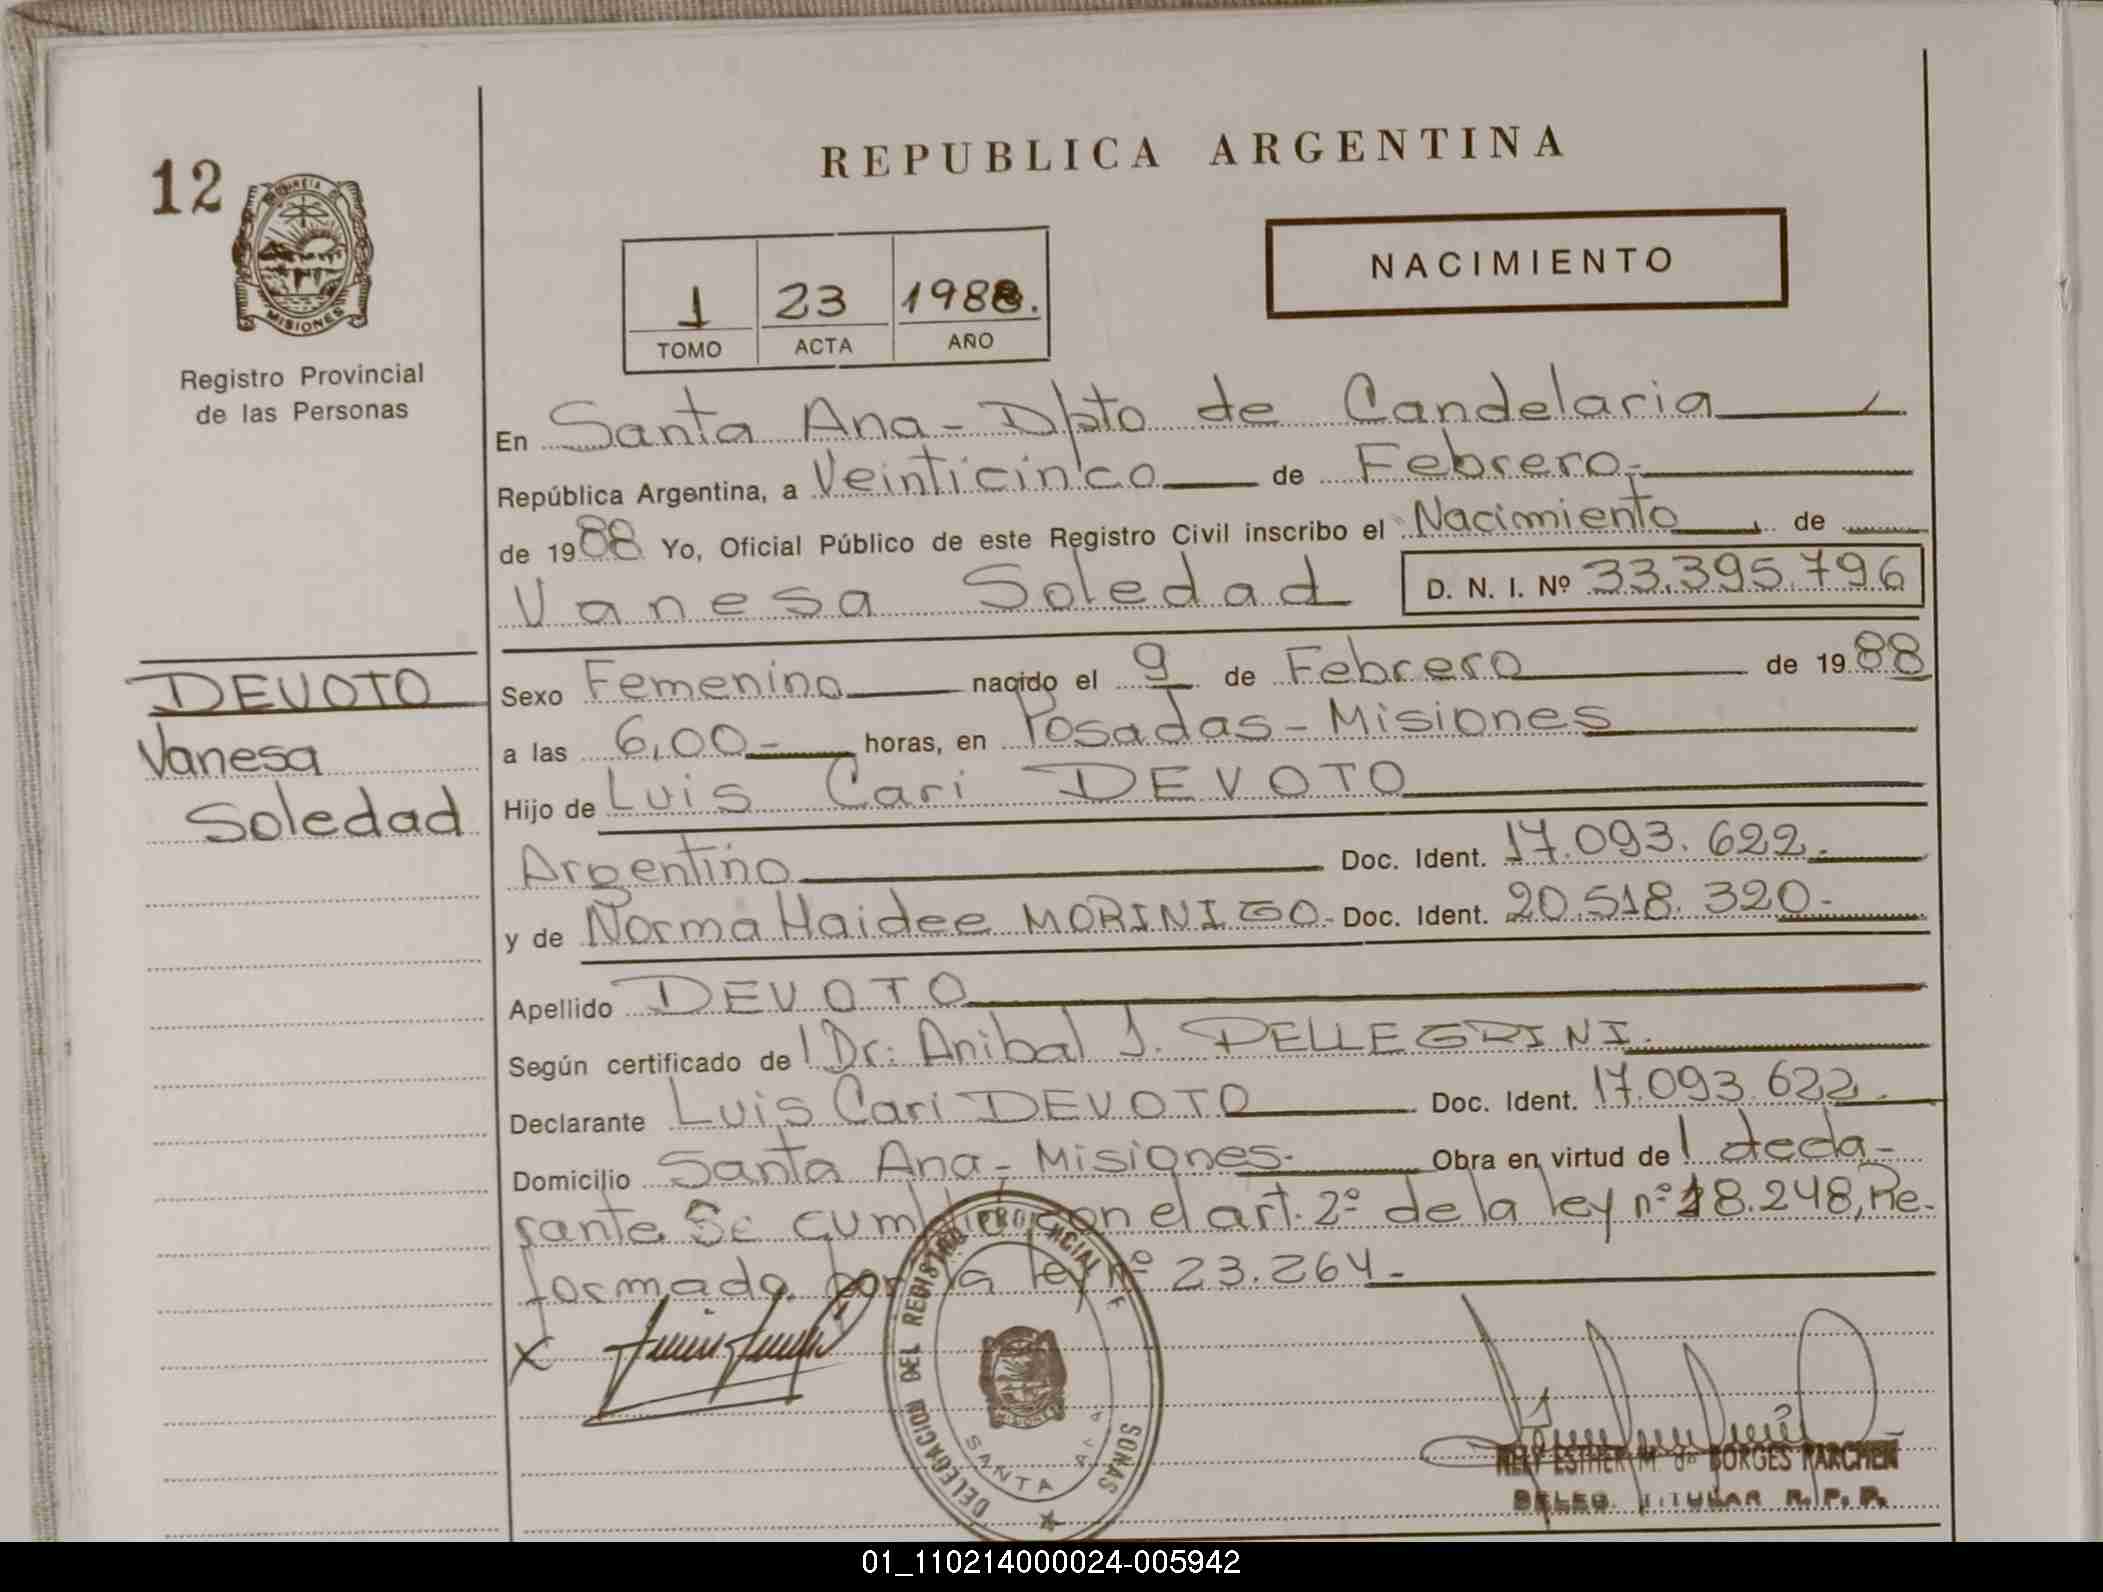 12
REPUBLICA ARGENTINA
NACIMIENTO
1 23 1988.
TOMO ACTA AÑO
MISIONES
Registro Provincial
de las Personas
En Santa Ana - Dpto de Candelaria
República Argentina, a Veinticinco de Febrero.-
de 1988 Yo, Oficial Público de este Registro Civil inscribo el Nacimiento de
Vanesa Soledad D. N. I. Nº 33.395.796
DEVOTO
Vanesa
Soledad
Sexo Femenino nacido el 9 de Febrero de 1988
a las 6,00- horas, en Posadas - Misiones
Hijo de Luis Cari DEVOTO
Argentino Doc. Ident. 17.093.622.-
y de Norma Haidee MORINIGO- Doc. Ident. 20.518.320-
Apellido DEVOTO
Según certificado de l Dr. Anibal J. PELLEGRINI.
Declarante Luis Cari DEVOTO Doc. Ident. 17.093.622.
Domicilio Santa Ana - Misiones- Obra en virtud de l decla-
rante. Se cumplió con el art. 2º de la ley nº 18.248, Re-
formada por la ley nº 23.264-
X
DELEGACION DEL REGISTRO PROVINCIAL
SANTA ANA
MISIONES
NELY ESTHER M. de BORGES PARCHEN
DELEG. TITULAR R. P. P.
01_110214000024-005942